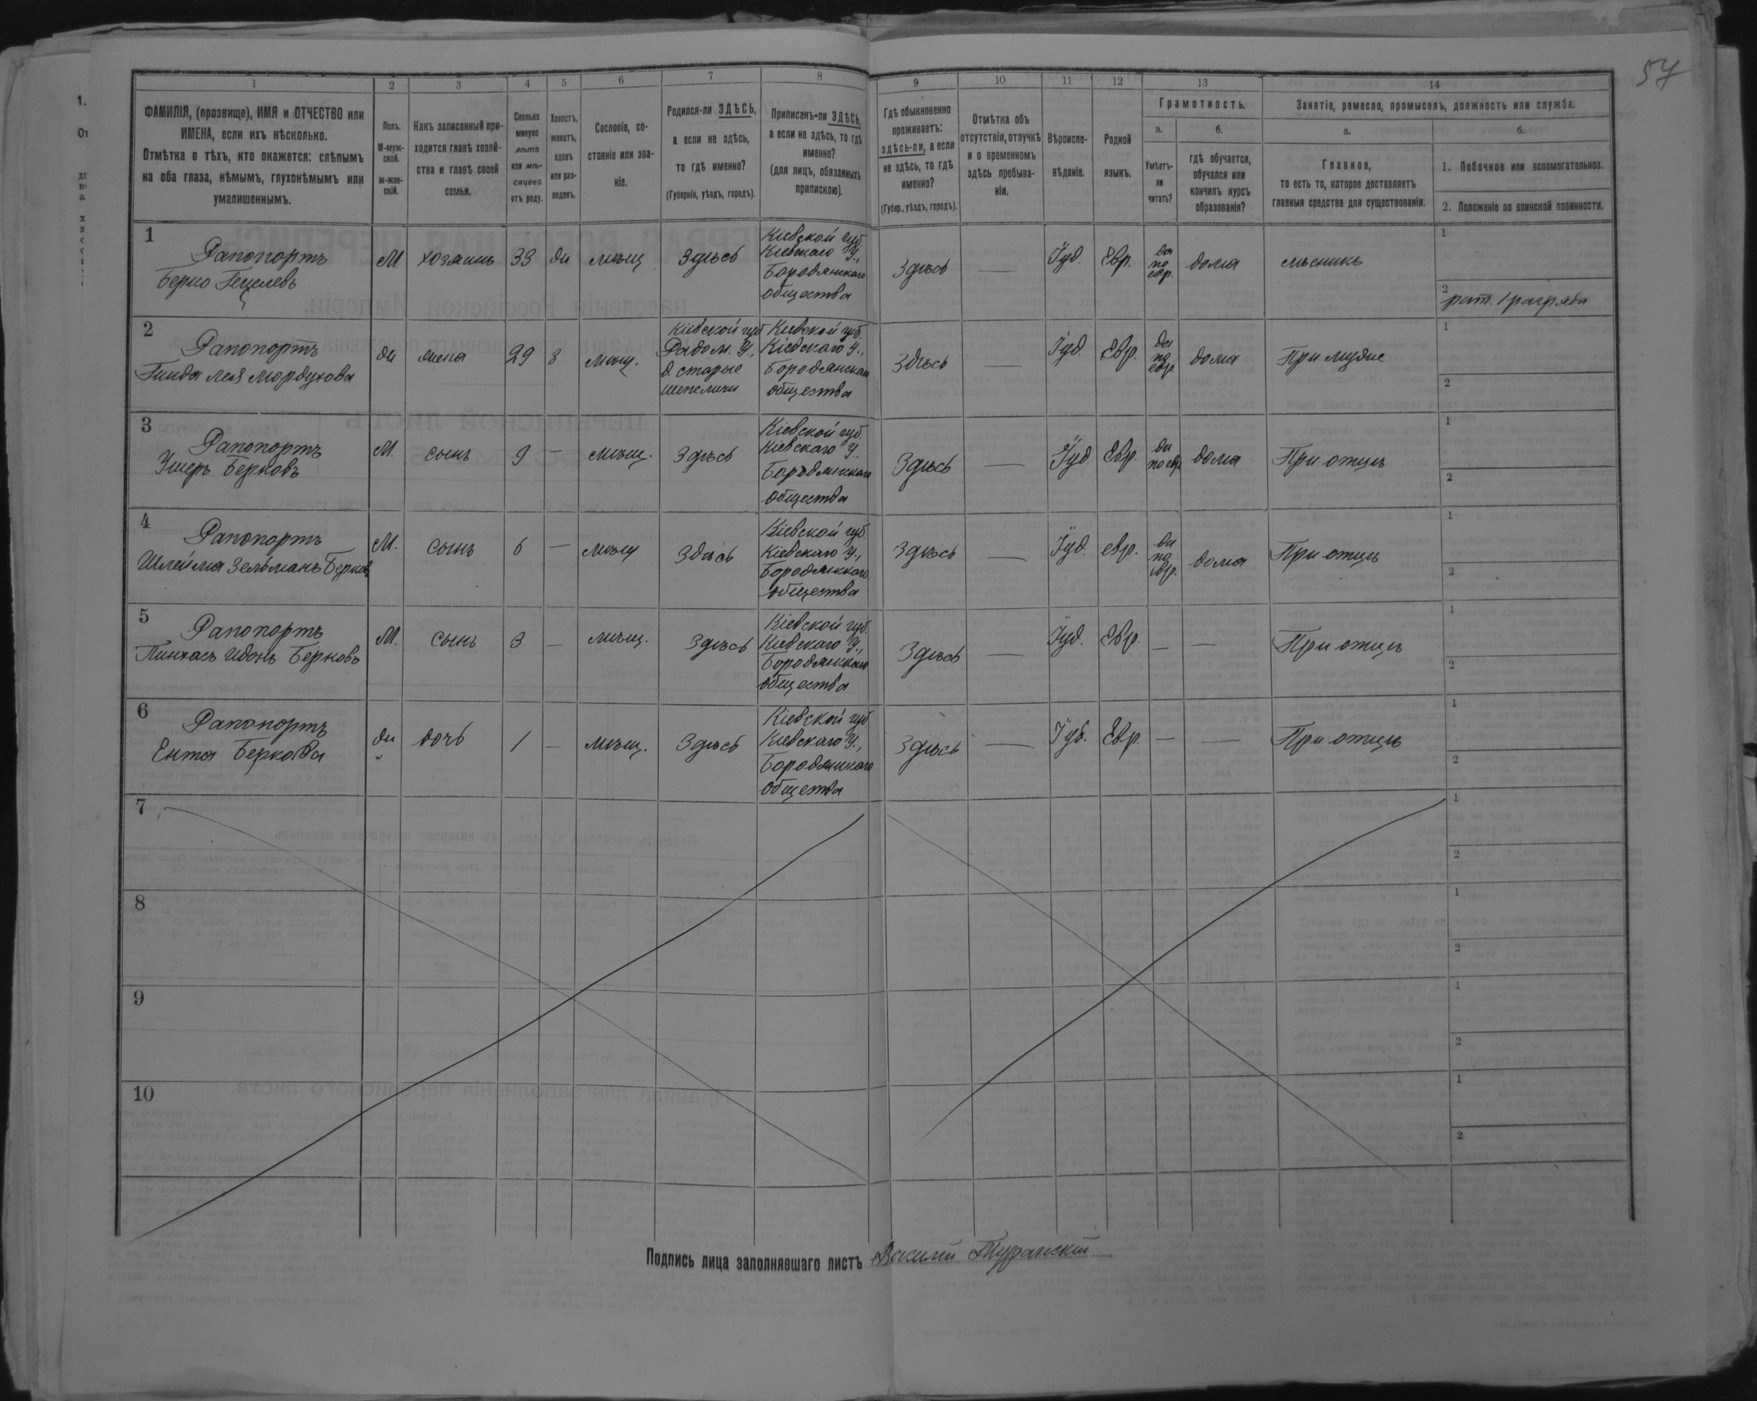 57
1 2 3 4 5 6 7 8 9 10 11 12 13 14
ФАМИЛІЯ, (прозвище), ИМЯ и ОТЧЕСТВО или
ИМЕНА, если ихъ нѣсколько.
Отмѣтка о тѣхъ, кто окажется: слѣпымъ
на оба глаза, нѣмымъ, глухонѣмымъ или
умалишеннымъ.
Полъ.
М-муж-
ской.
ж-жен-
скій.
Какъ записанный при-
ходится главѣ хозяй-
ства и главѣ своей
семьи.
Сколько
минуло
лѣтъ
или мѣ-
сяцевъ
отъ роду.
Холостъ,
женатъ,
вдовъ
или раз-
веденъ.
Сословіе, со-
стояніе или зва-
ніе.
Родился-ли ЗДѢСЬ,
а если не здѣсь,
то гдѣ именно?
(Губернія, уѣздъ, городъ).
Приписанъ-ли ЗДѢСЬ,
а если не здѣсь, то гдѣ
именно?
(для лицъ, обязанныхъ
припискою).
Гдѣ обыкновенно
проживаетъ:
здѣсь-ли, а если
не здѣсь, то гдѣ
именно?
(Губер., уѣздъ, городъ).
Отмѣтка объ
отсутствіи, отлучкѣ
и о временномъ
здѣсь пребыва-
ніи.
Вѣроиспо-
вѣданіе.
Родной
языкъ.
Грамотность.
а.
Умѣетъ-
ли
читать?
б.
гдѣ обучается,
обучался или
кончилъ курсъ
образованія?
Занятіе, ремесло, промыселъ, должность или служба.
а.
Главное,
то есть то, которое доставляетъ
главныя средства для существованія.
б.
1. Побочное или вспомогательное.
2. Положеніе по воинской повинности.
1
Рапопортъ
Берко Гецелевъ
М
хозяинъ
33
мѣщ
Здѣсь
Кіевской губ
Кіевскаго У.,
Бородянскаго
общества
Здѣсь
—
Іуд.
Евр.
да
по
евр.
дома
мясникъ
1
2
рат. 1 разряда
2
Рапопортъ
Гинда Лея Мордухова
жена
29
мѣщ.
Кіевской губ
Радом. У,
д. старые
шепеличи
Кіевской губ
Кіевскаго У.,
Бородянскаго
общества
Здѣсь
—
Іуд
Евр.
да
по
евр
дома
При мужѣ
1
2
3
Рапопортъ
Ушеръ Берковъ
М.
сынъ
9
—
мѣщ.
Здѣсь
Кіевской губ.
Кіевскаго У.
Бородянскаго
общества
Здѣсь
—
Іуд
Евр.
да
по евр
дома
При отцѣ
1
2
4
Рапопортъ
Шлейма Зельманъ Берков
М.
сынъ
6
—
мѣщ
Здѣсь
Кіевской губ
Кіевскаго У.,
Бородянскаго
общества
Здѣсь
—
Іуд.
евр.
да
по
евр.
дома
При отцѣ
1
2
5
Рапопортъ
Пинхасъ Берковъ
М.
сынъ
3
—
мѣщ.
Здѣсь
Кіевской губ.
Кіевскаго У.,
Бородянскаго
общества
Здѣсь
—
Іуд.
Евр.
—
—
При отцѣ
1
2
6
Рапопортъ
Ента Беркова
дочь
1
—
мѣщ.
Здѣсь
Кіевской губ
Кіевскаго У.,
Бородянскаго
общества
Здѣсь
—
Іуд.
Евр
—
—
При отцѣ
1
2
7
1
2
8
1
2
9
1
2
10
1
2
Подпись лица заполнявшаго листъ Василій Туранскій